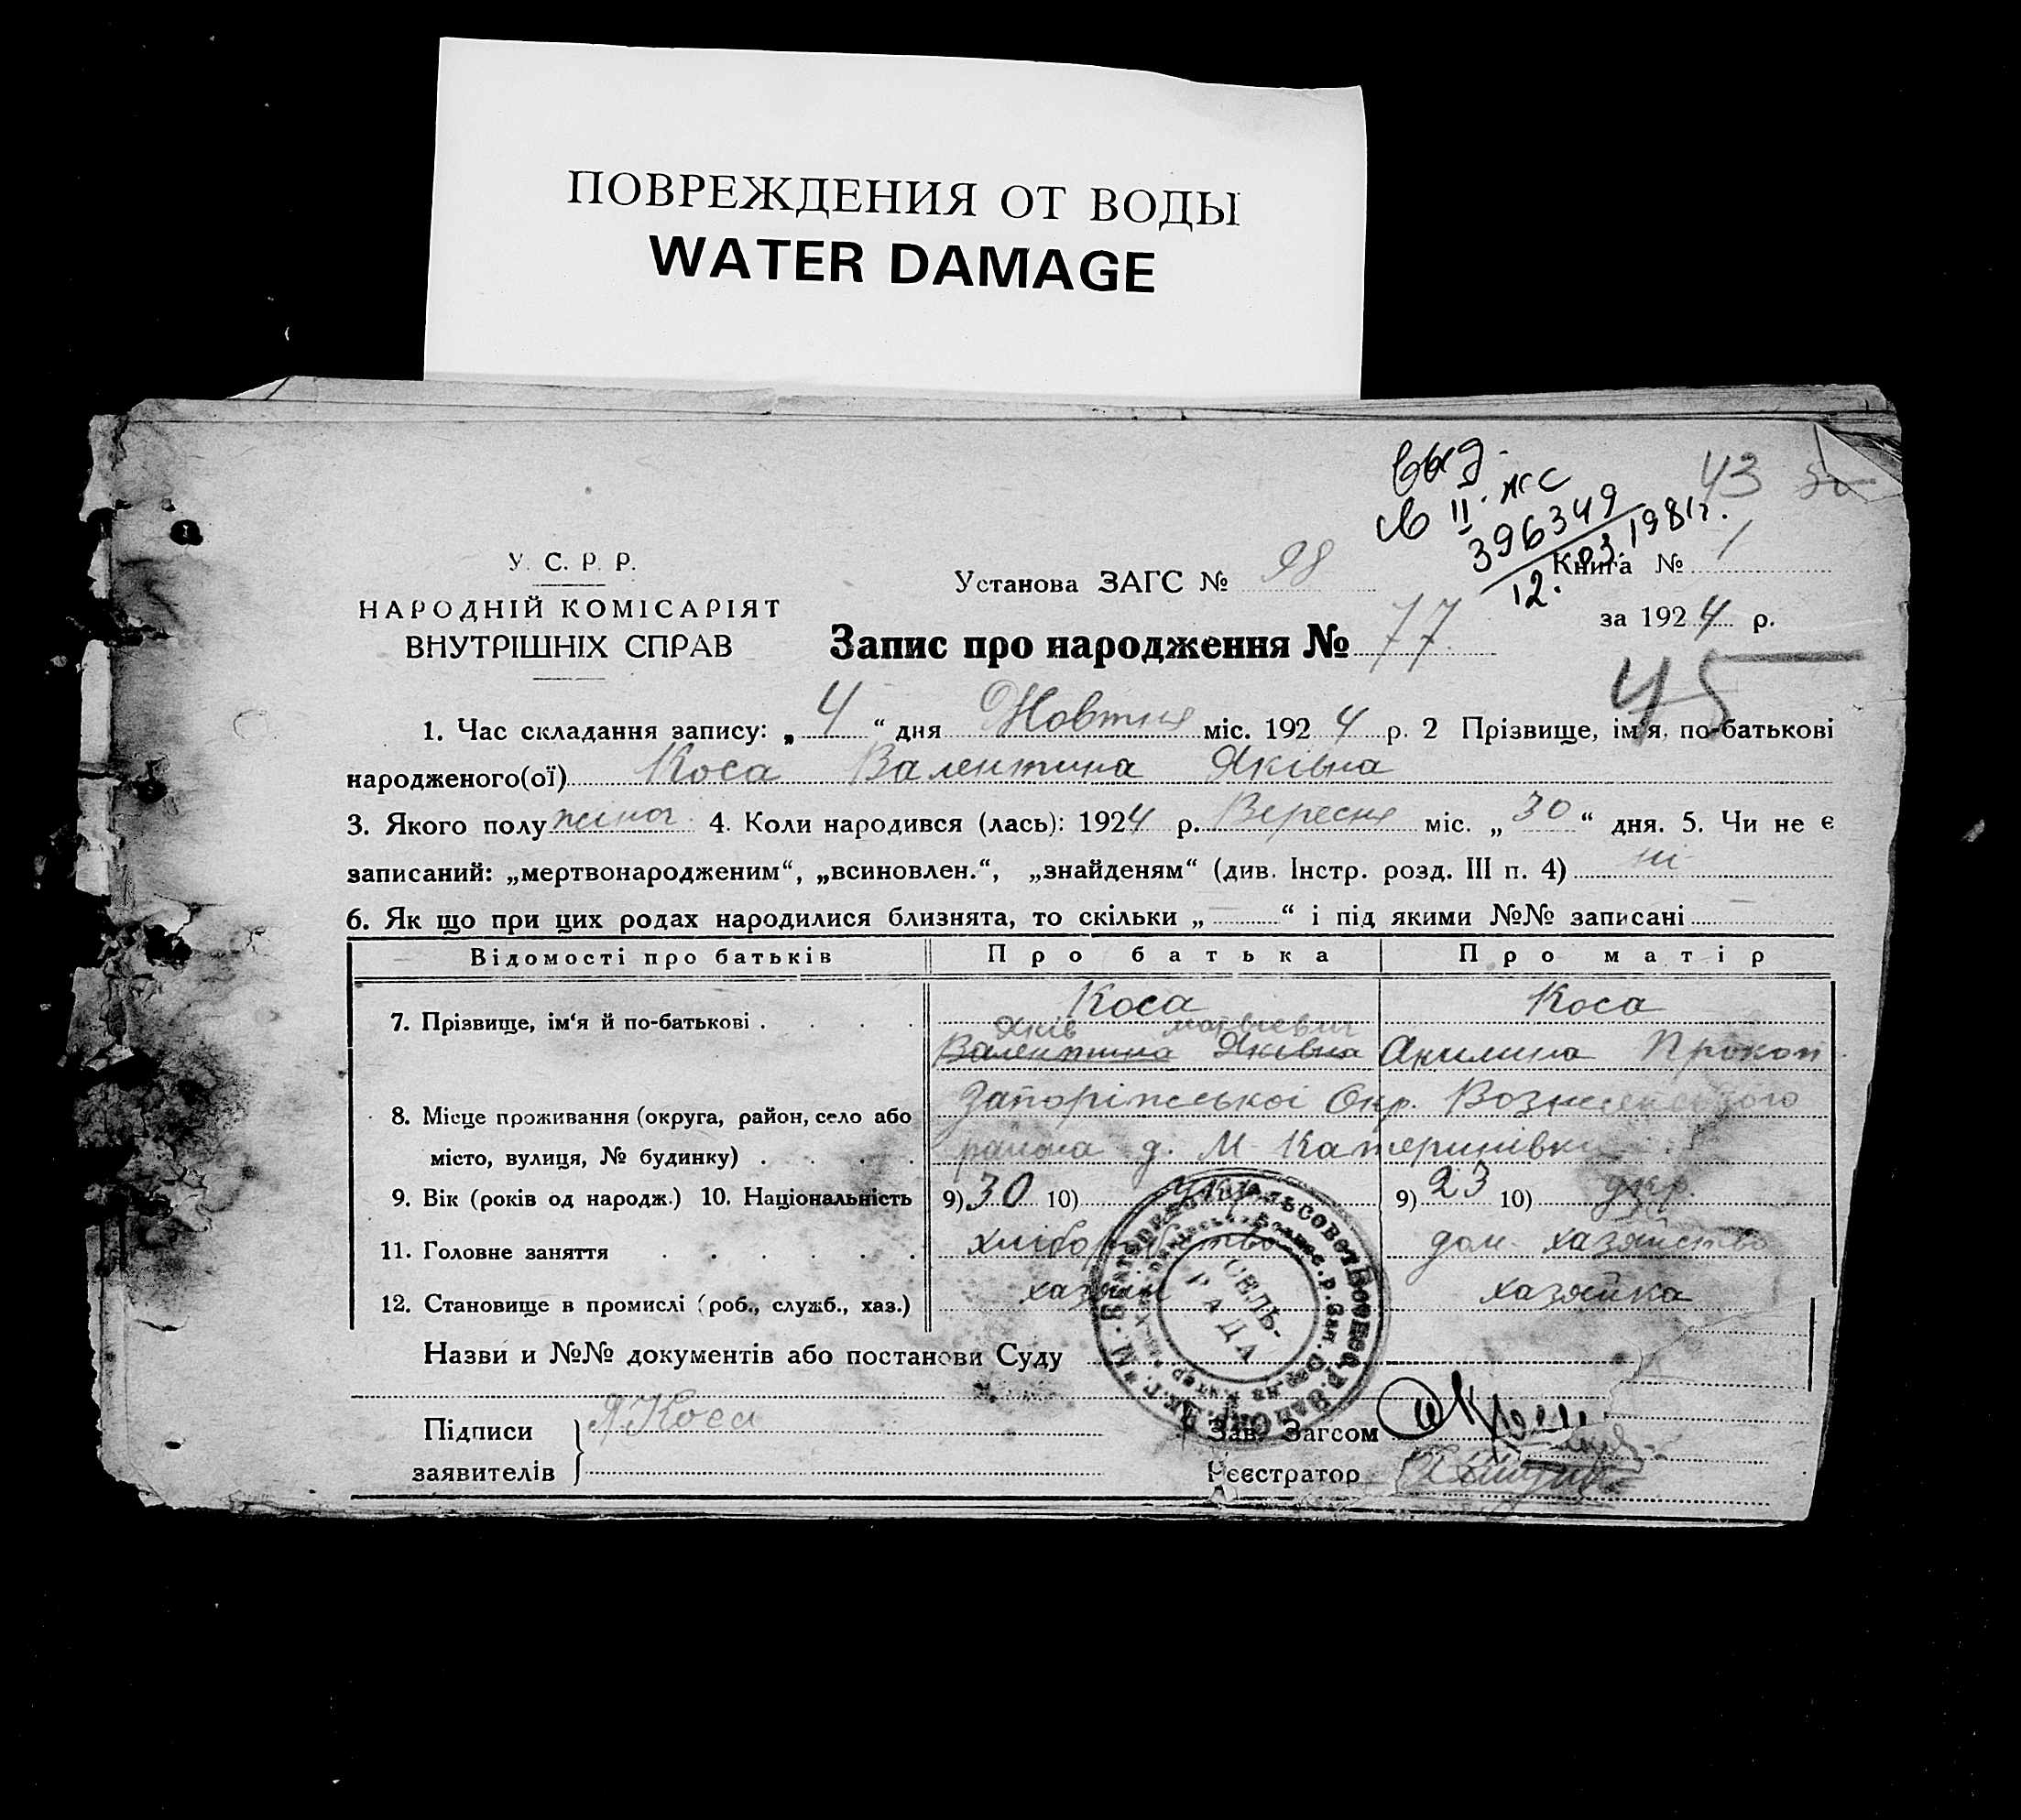 ПОВРЕЖДЕНИЯ ОТ ВОДЫ
WATER DAMAGE
выд.
св II. жс
396349
12. 03. 1981г.
43
У. С. Р. Р.
НАРОДНІЙ КОМІСАРІЯТ
ВНУТРІШНІХ СПРАВ
Установа ЗАГС № 98
Книга № 1
за 1924 р.
Запис про народження № 77
45
1. Час складання запису: „ 4 “ дня Жовтня міс. 1924 р. 2 Прізвище, ім'я, по-батькові
народженого(ої) Коса Валентина Яківна
3. Якого полу жіноч. 4. Коли народився (лась): 1924 р. Вересня міс. „ 30 “ дня. 5. Чи не є
записаний: „мертвонародженим“, „всиновлен.“, „знайденям“ (див. Інстр. розд. III п. 4) ні
6. Як що при цих родах народилися близнята, то скільки „ — “ і під якими №№ записані —
Відомості про батьків Про батька Про матір
7. Прізвище, ім‘я й по-батькові . . . . Коса Коса
Яків матвієвич
Валентина Яківна Акилина Прокоп
8. Місце проживання (округа, район, село або Запоріжської Окр. Вознесенського
місто, вулиця, № будинку) . . . . района д. М Катеринівки
9. Вік (років од народж.) 10. Національність 9) 30 10) укр 9) 23 10) укр.
11. Головне заняття . . . . . . хліборобство дом. хазяйство
12. Становище в промислі (роб., служб., хаз.) хазяин хазяйка
СЕЛЬ-
РАДА
Назви и №№ документів або постанови Суду
Підписи
заявителів
Я Коса
Зав. Загсом
Реєстратор